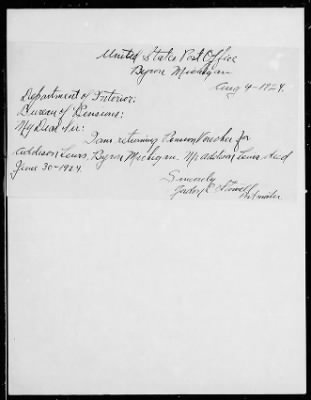 United States Post Office
Byron Michigan
Aug 4-1924.
Department of Interior:
Bureau of Pensions:
My Dear Sir:
I am returning Pension Voucher for
Addison Lewis, Byron Michigan. Mr Addison Lewis died
June 30-1924.
Sincerely
Postmaster